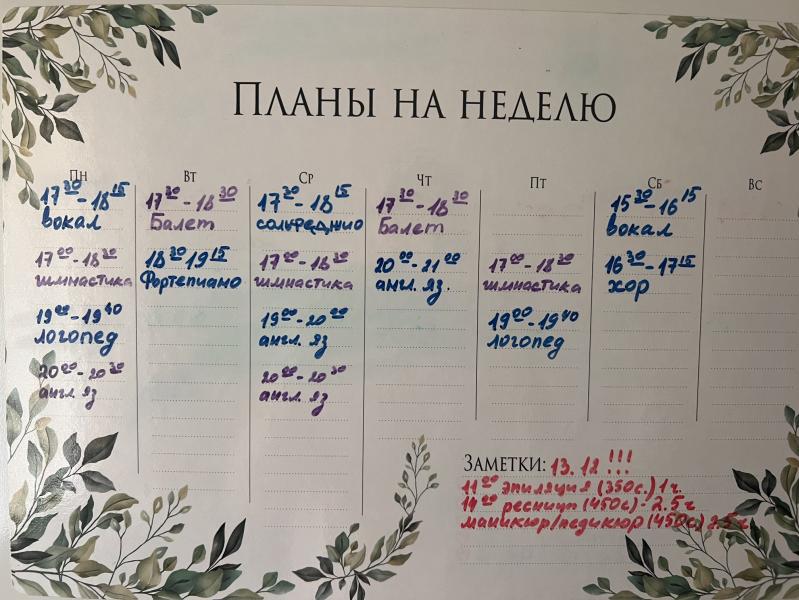 ПЛАНЫ НА НЕДЕЛЮ
ПН
17 30 - 18 15
вокал
17 00 - 18 30
гимнастика
19 00 - 19 40
логопед
20 00 - 20 30
англ. яз
ВТ
17 30 - 18 30
Балет
18 30 19 15
Фортепиано
СР
17 30 - 18 15
сольфеджио
17 00 - 18 30
гимнастика
19 00 - 20 00
англ. яз
20 00 - 20 30
англ. яз
ЧТ
17 30 - 18 30
Балет
20 00 - 21 00
англ. яз.
ПТ
17 00 - 18 30
гимнастика
19 00 - 19 40
логопед
СБ
15 30 - 16 15
вокал
16 30 - 17 15
хор
ВС
ЗАМЕТКИ: 13.12 !!!
11 00 эпиляция (350с.) 1 ч.
14 00 ресницы (450с) - 2.5 ч
маникюр/педикюр (450с) 2.5 ч